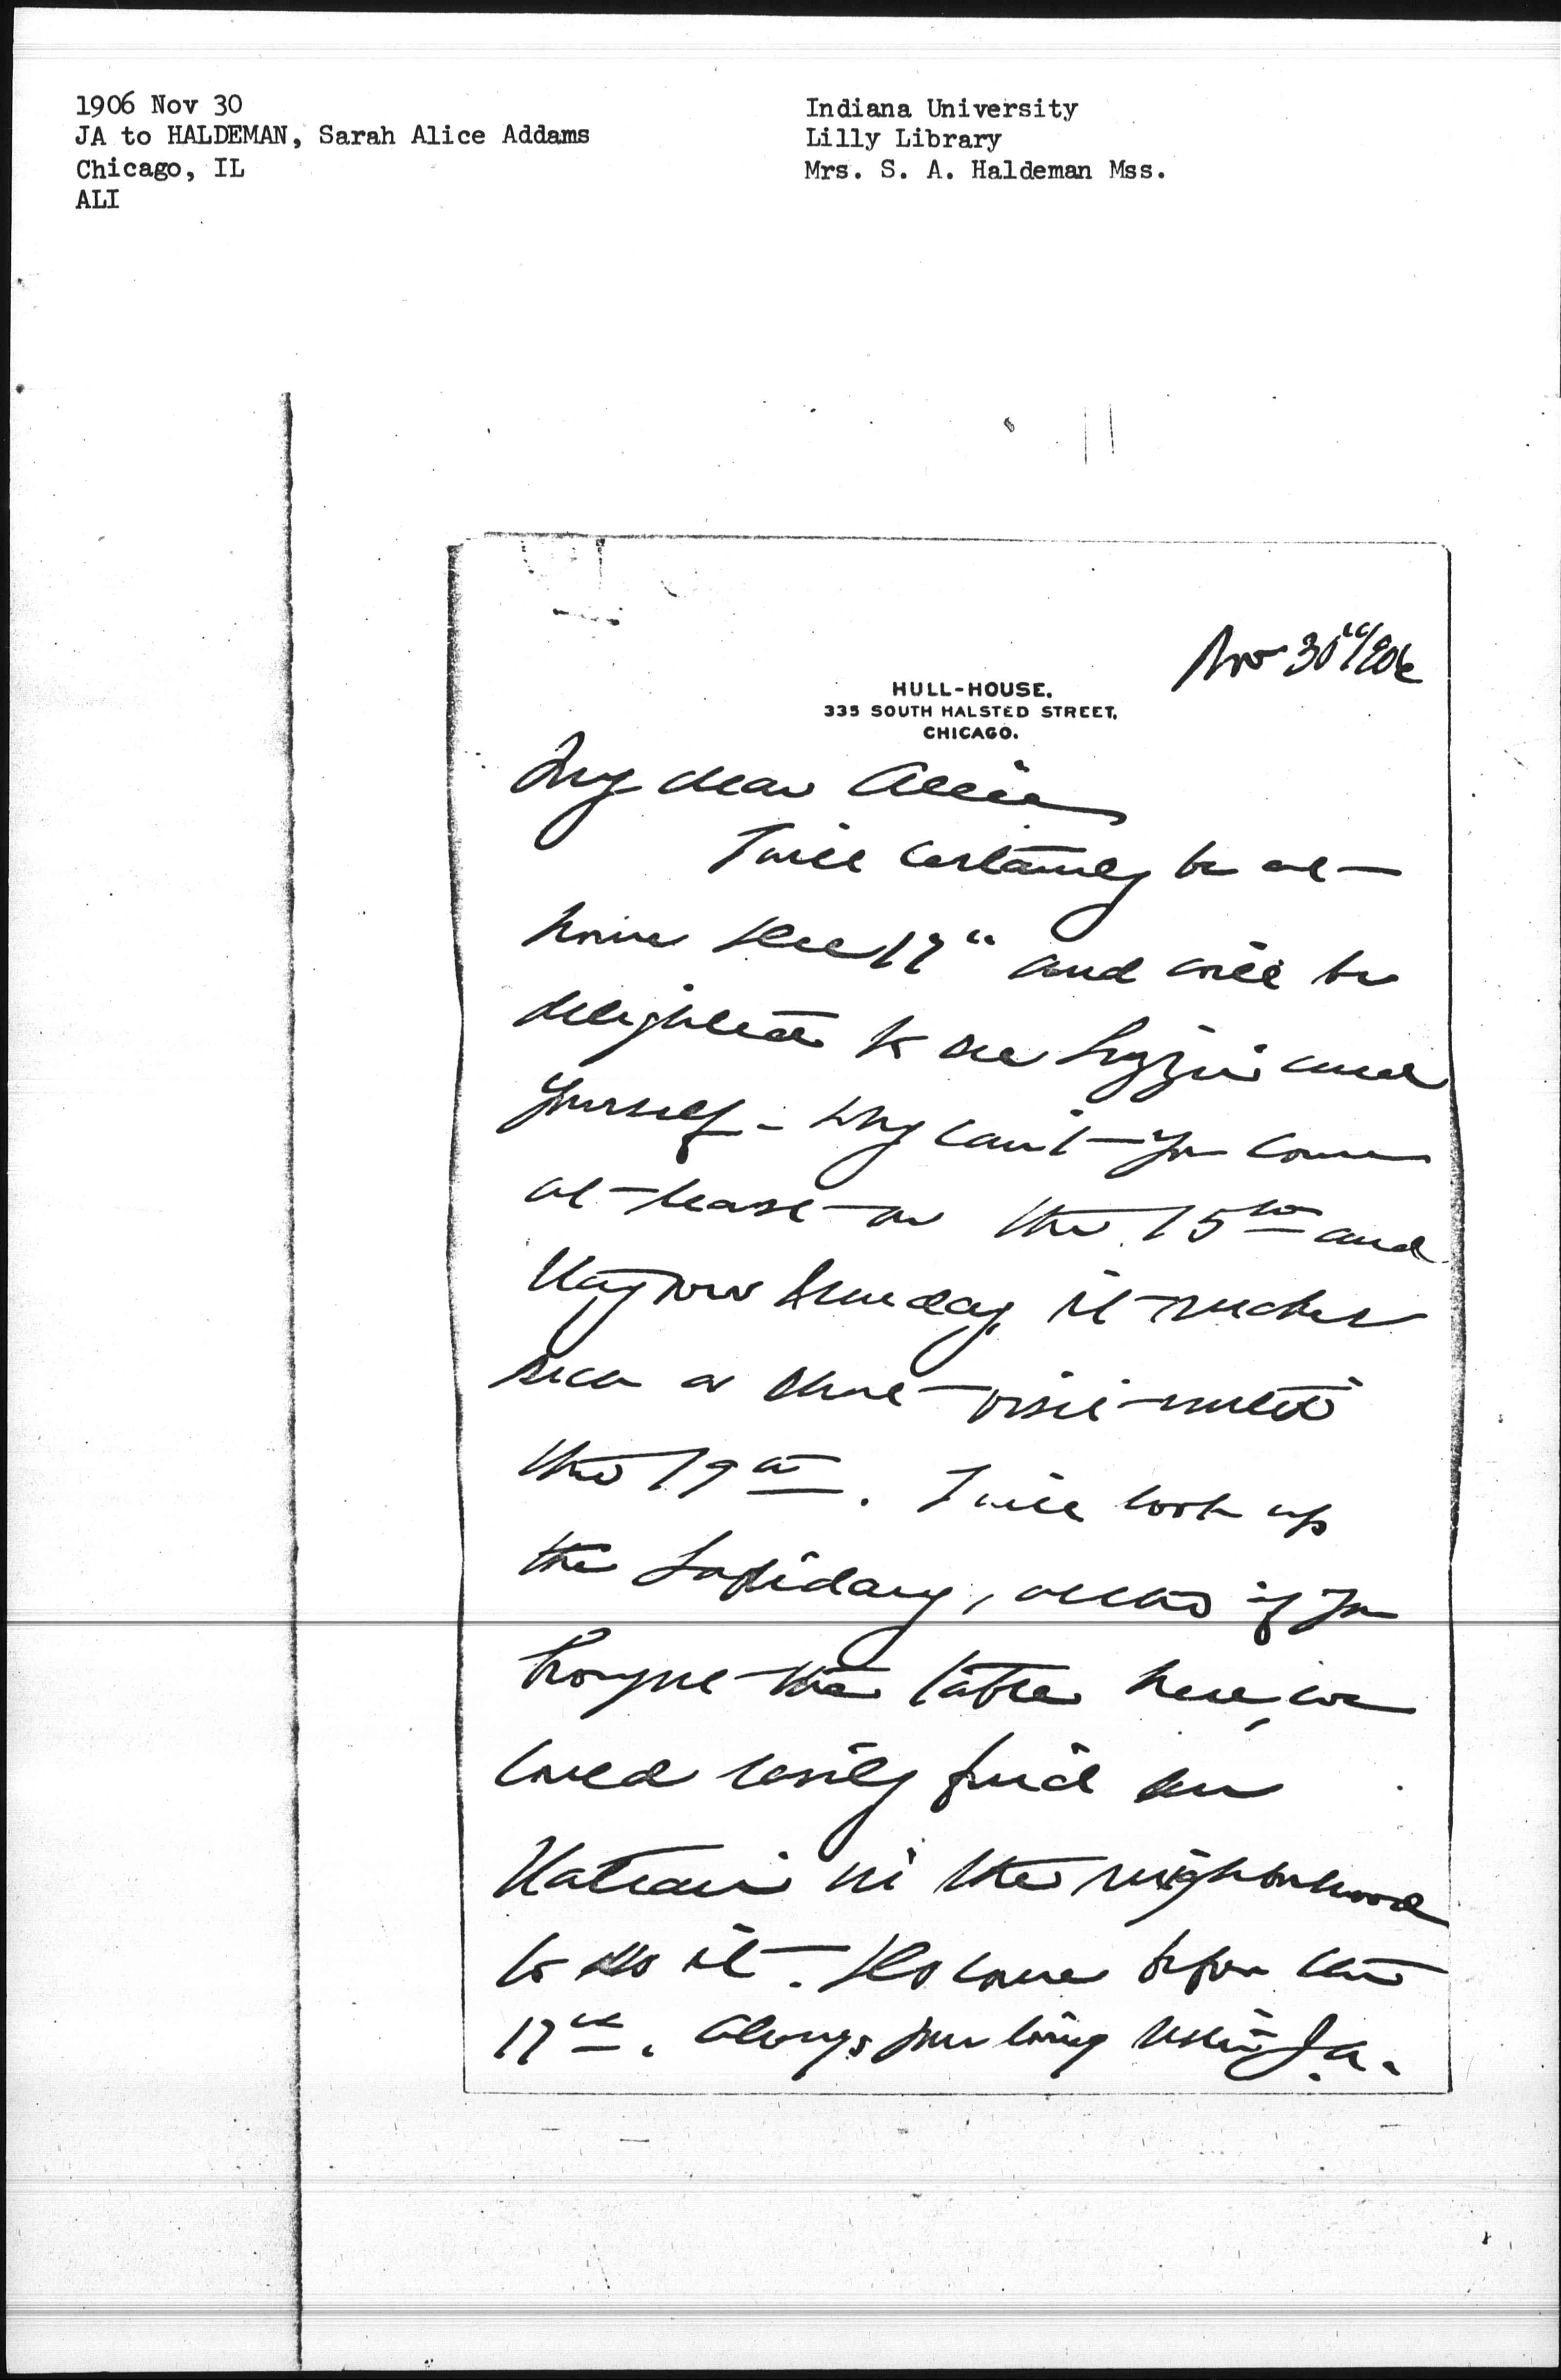 1906 Nov 30
JA to HALDEMAN, Sarah Alice Addams
Chicago, IL
ALI
Indiana University
Lilly Library
Mrs. S. A. Haldeman Mss.
Nov 30"/906
HULL-HOUSE,
335 SOUTH HALSTED STREET,
CHICAGO.
My dear Alice
I will certainly be at
home Dec 17" and will be
delighted to see Lizzie and
yourself - Why can't you come
at least on the 15th and
stay over Sunday, it makes
such a short visit until
the 17th. I will look up
the Lapidary, altho if you
bought the table here, we
could easily find an
Italian in the neighborhood
to do it. Do come before the
17th. Always your loving sister J.A.